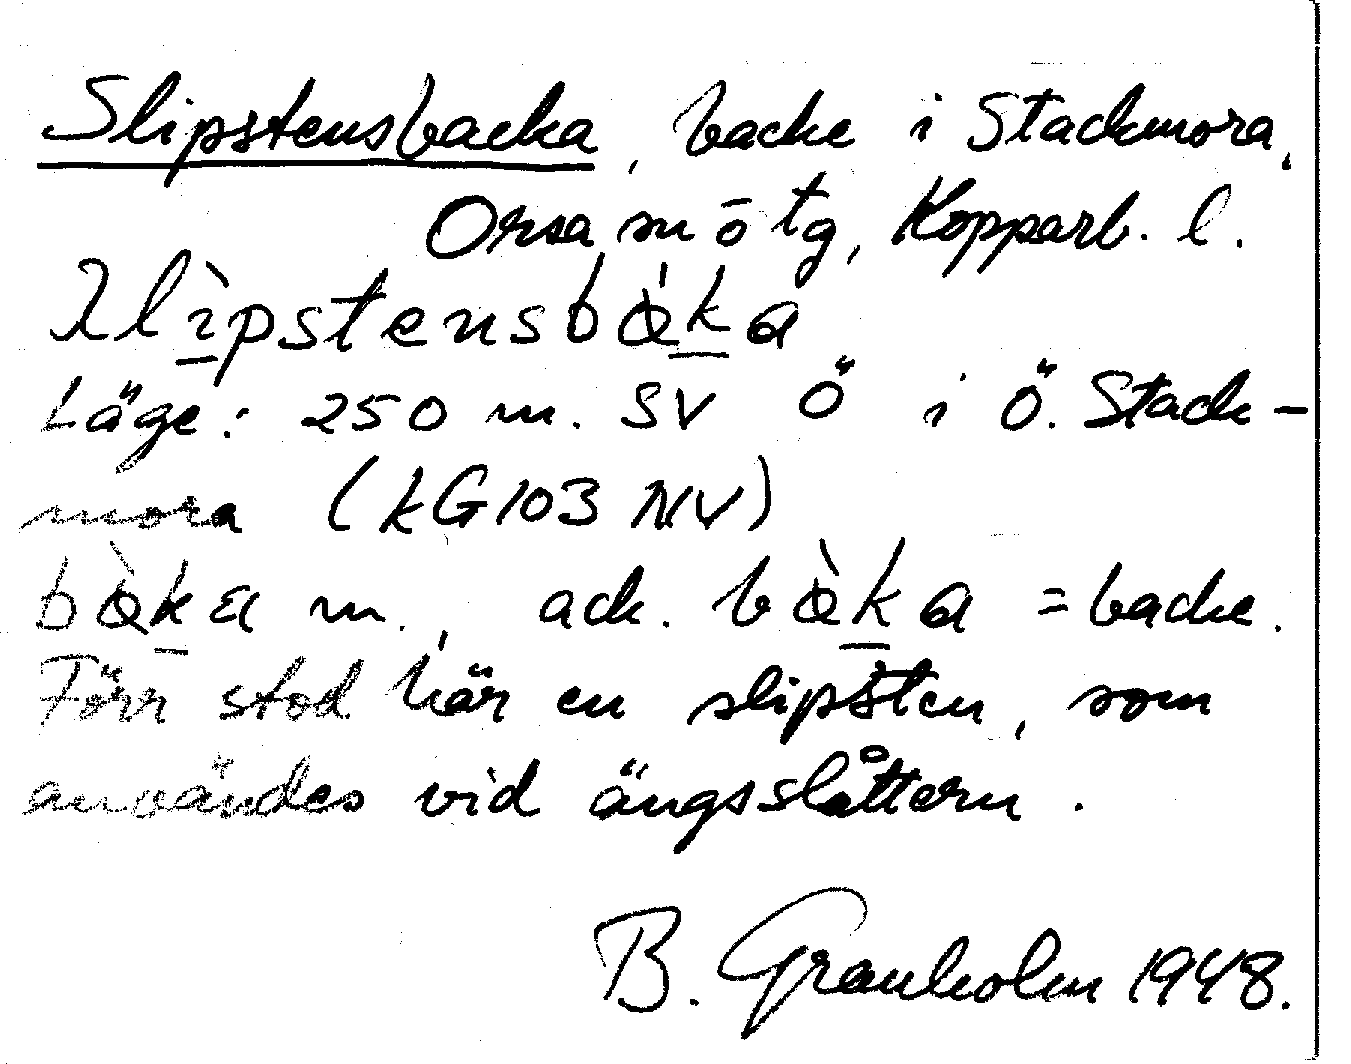 Slipstensbacka, backe i Stackmora,
Orsa sn ō tg, Kopparb. l.
ɀlìpstensbàka
Läge: 250 m. SV Ö i Ö. Stack-
mora (kG103 NV)
bàka m., ack. bàka = backe.
Förr stod här en slipsten, som
användes vid ängsslåttern.
B. Granholm 1948.